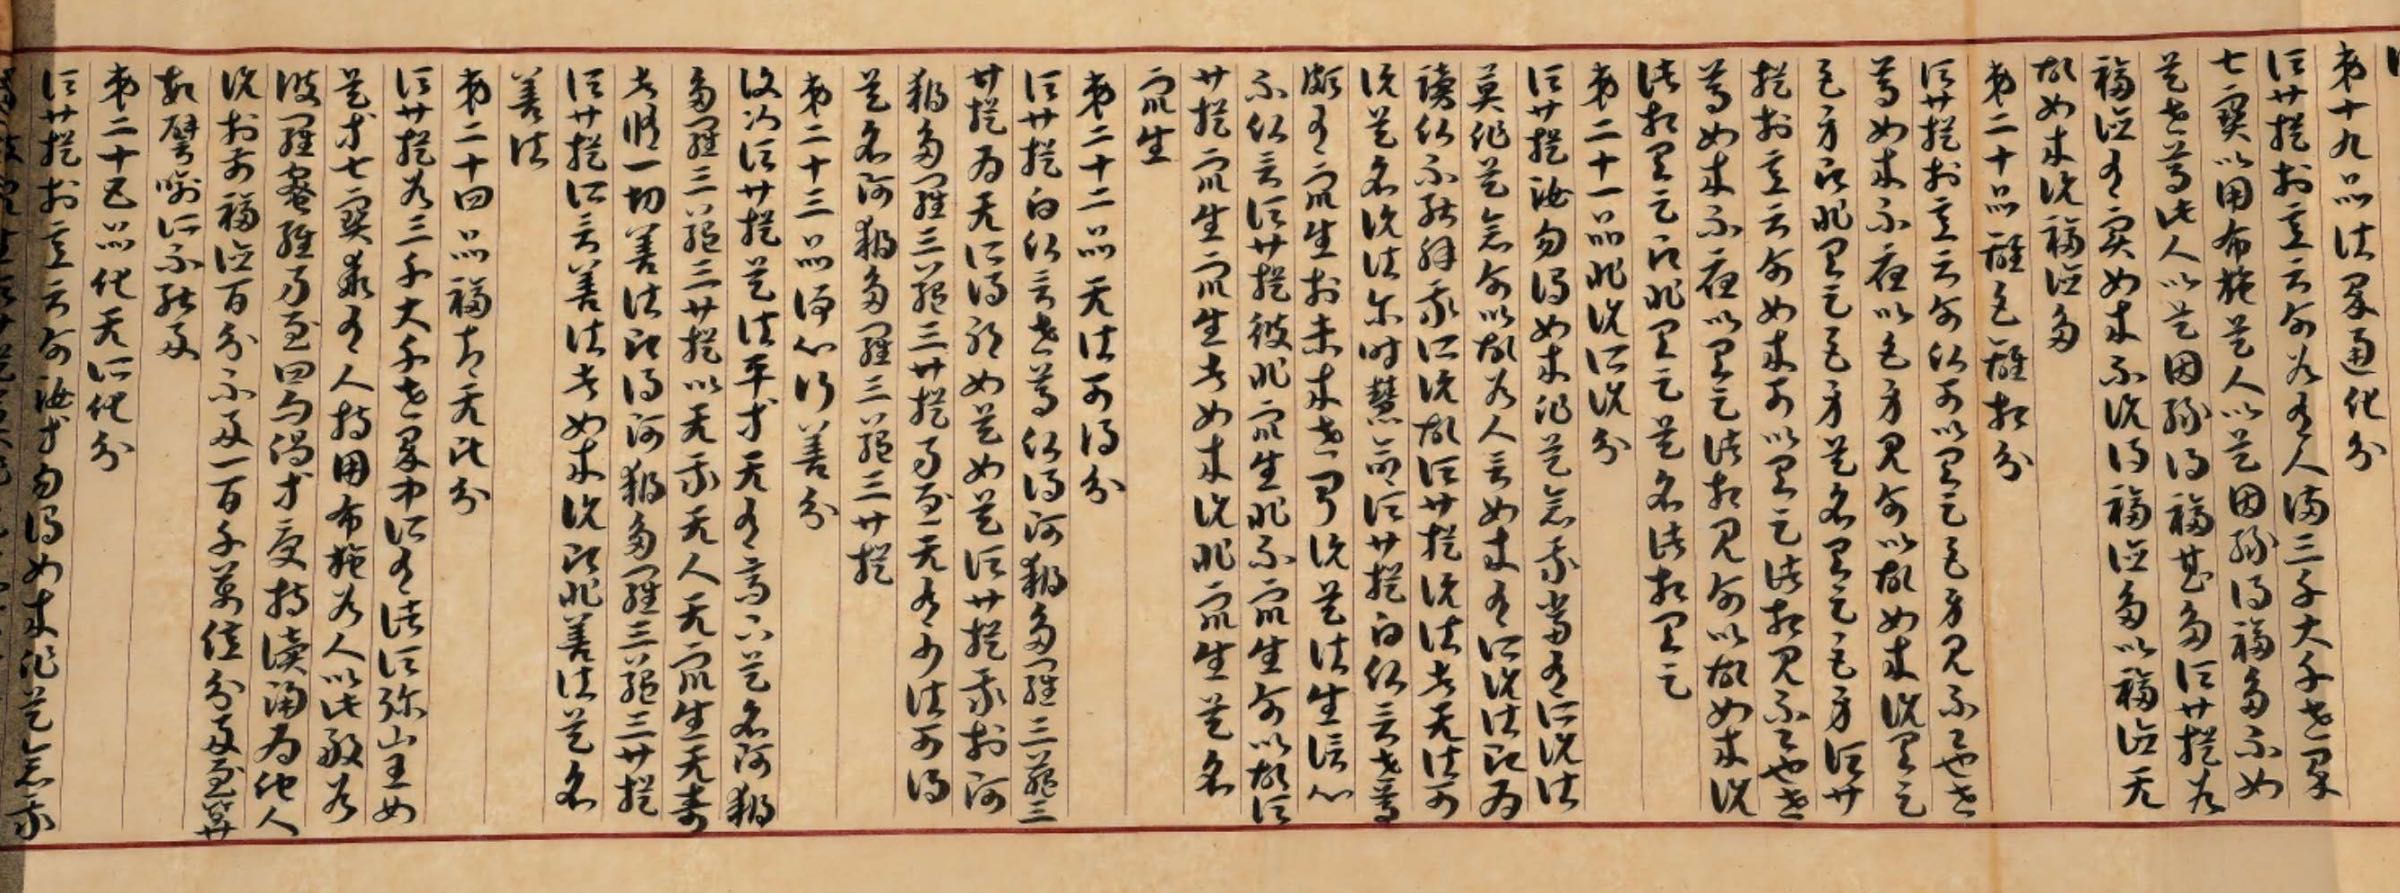 第十九品法界通化分
須菩提於意云何若有人滿三千大千世界
七寶以用布施是人以是因緣得福多不如
是世尊此人以是因緣得福甚多須菩提若
福德有實如來不說得福德多以福德无
故如來說福德多
第二十品離色離相分
須菩提於意云何佛可以具足色身見不也世
尊如來不應以色身見何以故如來說具足
色身即非具足色身是名具足色身須菩
提於意云何如來可以具足諸相見不也世
尊如來不應以具足諸相見何以故如來說
諸相具足即非具足是名諸相具足
第二十一品非說所說分
須菩提汝勿謂如來作是念我當有所說法
莫作是念何以故若人言如來有所說法即為
謗佛不能解我所說故須菩提說法者无法可
說是名說法尒時慧命須菩提白佛言世尊
頗有眾生於未來世聞說是法生信心
不佛言須菩提彼非眾生非不眾生何以故須
菩提眾生眾生者如來說非眾生是名
眾生
第二十二品无法可得分
須菩提白佛言世尊佛得阿耨多羅三藐三
菩提為无所得耶如是如是須菩提我於阿
耨多羅三藐三菩提乃至无有少法可得
是名阿耨多羅三藐三菩提
第二十三品淨心行善分
復次須菩提是法平等无有高下是名阿耨
多羅三藐三菩提以无我无人无眾生无壽
者脩一切善法即得阿耨多羅三藐三菩提
須菩提所言善法者如來說即非善法是名
善法
第二十四品福智无比分
須菩提若三千大千世界中所有諸須弥山王如
是等七寶聚有人持用布施若人以此般若
波羅蜜經乃至四句偈等受持讀誦為他人
說於前福德百分不及一百千萬億分乃至筭
數譬喻所不能及
第二十五品化无所化分
須菩提於意云何汝等勿謂如來作是念我